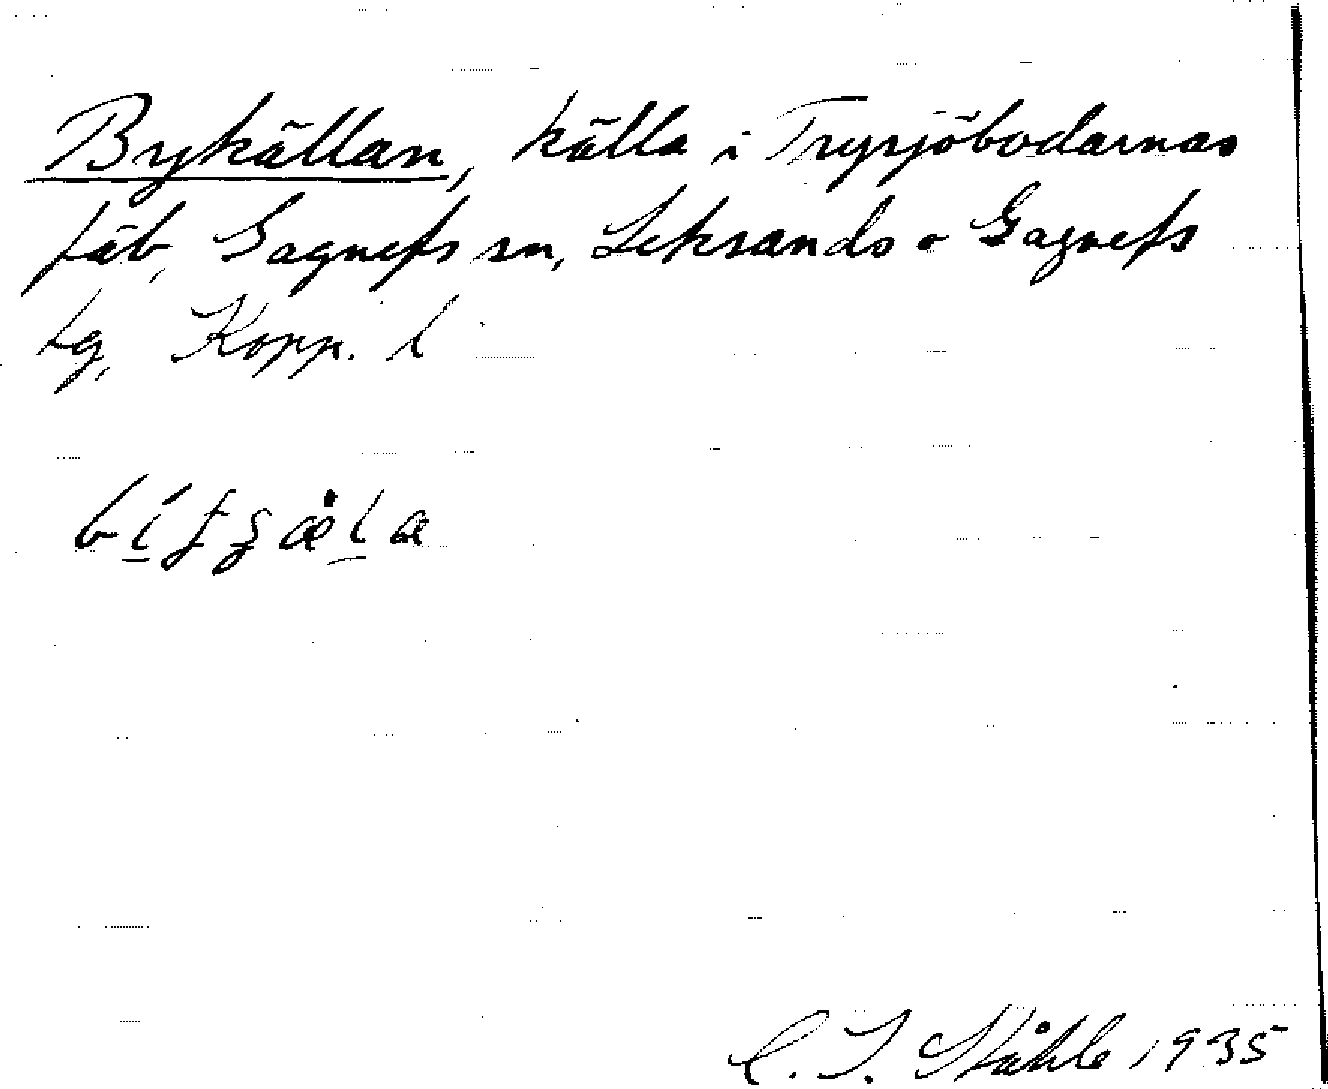 Bykällan, källa i Trysjöbodarnas
fäb, Gagnefs sn, Leksands o Gagnefs
tg, Kopp. l
C. I. Ståhle 1935